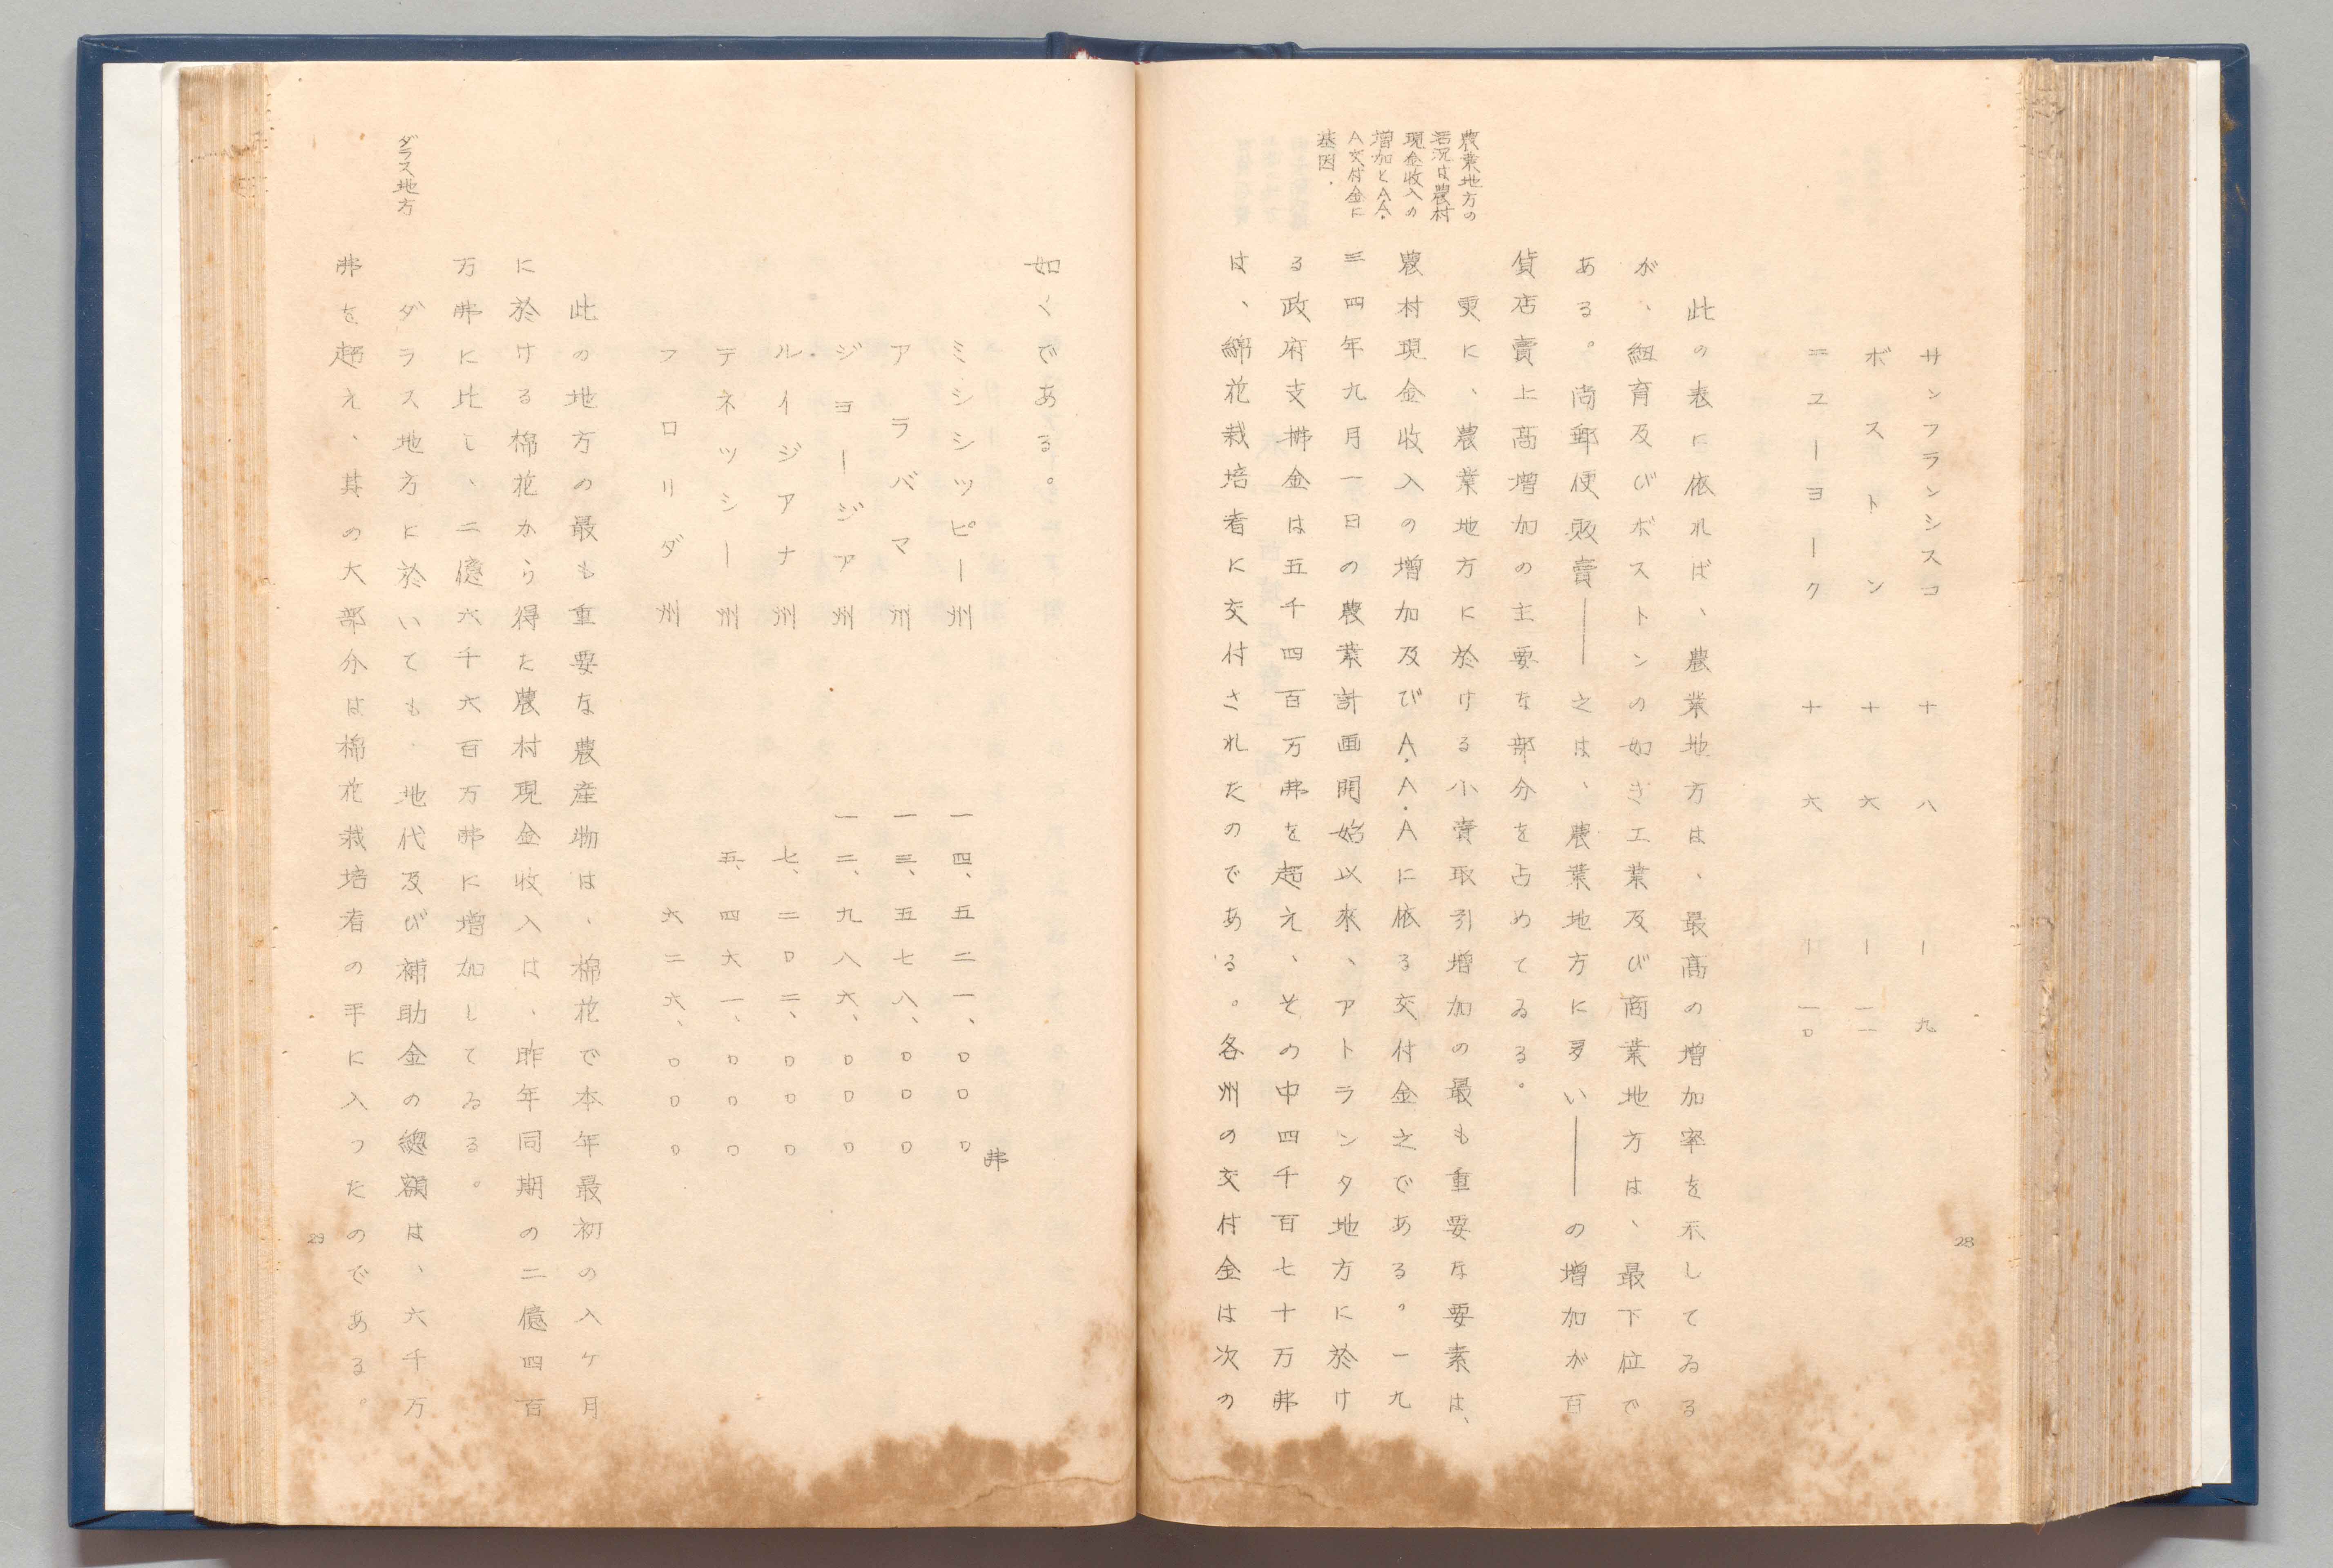 サンフランシスコ　＋八　－九
ボストン　＋六　－一一
ニユーヨーク　＋六　－一〇
此の表に依れば、農業地方は、最高の増加率を示してゐる
が、紐育及びボストンの如き工業及び商業地方は、最下位で
ある。尚郵便販賣――之は、農業地方に多い――の増加が百
貨店賣上高増加の主要な部分を占めてゐる。
農業地方の
活況は農村
現金收入の
増加とA.A.
A交付金に
基因.
更に、農業地方に於ける小賣取引増加の最も重要な要素は、
農村現金收入の増加及びA.A.Aに依る交付金之である。一九
三四年九月一日の農業計画開始以來、アトランタ地方に於け
る政府支拂金は五千四百万弗を超え、その中四千百七十万弗
は、綿花栽培者に交付されたのである。各州の交付金は次の
28
如くである。
弗
ミシシツピー州　一四、五二一、〇〇〇
アラバマ州　一三、五七八、〇〇〇
ジヨージア州　一二、九八六、〇〇〇
ルイジアナ州　七、二〇二、〇〇〇
テネツシー州　五、四六一、〇〇〇
フロリダ州　六二六、〇〇〇
此の地方の最も重要な農産物は、棉花で本年最初の八ケ月
に於ける棉花から得た農村現金收入は、昨年同期の二億四百
万弗に比し、二億六千六百万弗に増加してゐる。
ダラス地方
ダラス地方に於いても、地代及び補助金の總額は、六千万
弗を超え、其の大部分は棉花栽培者の手に入つたのである。
29